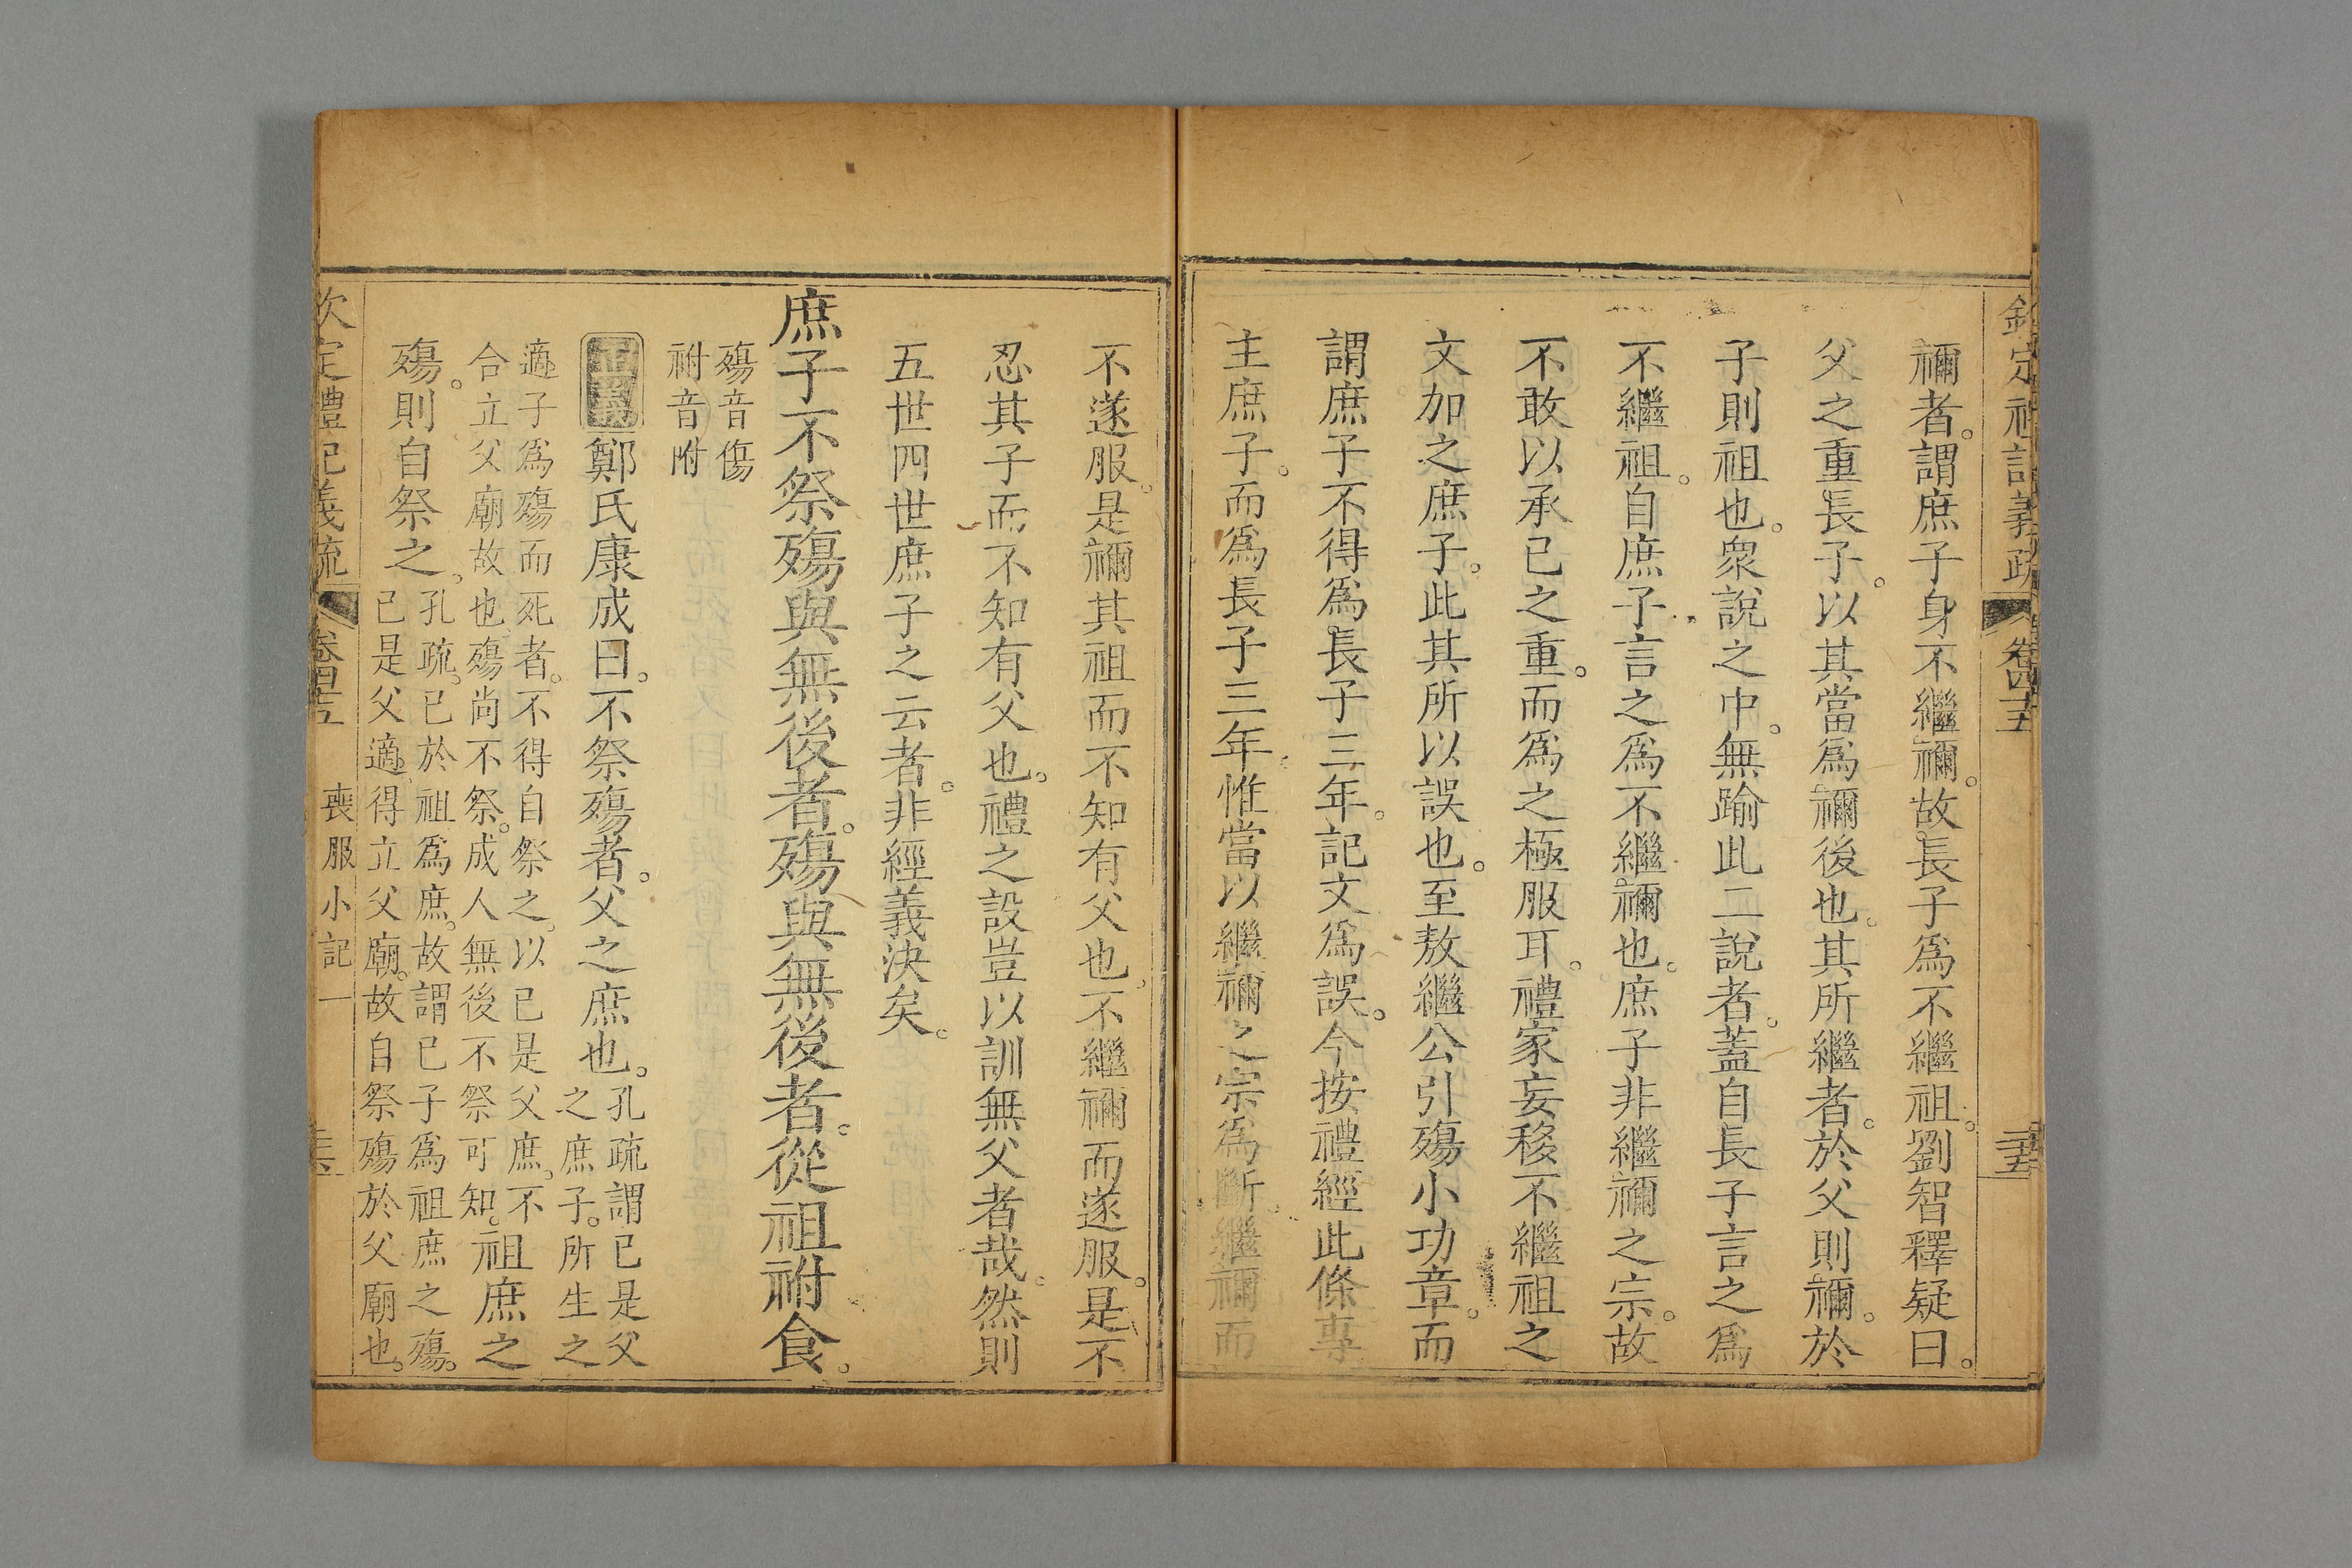 欽定禮記義疏 卷四十五
禰者。謂庶子身不繼禰。故長子爲不繼祖。劉智釋疑曰。
父之重長子。以其當爲禰後也。其所繼者。於父則禰。於
子則祖也。衆說之中。無踰此二說者。蓋自長子言之爲
不繼祖。自庶子言之爲不繼禰也。庶子非繼禰之宗。故
不敢以承己之重。而爲之極服耳。禮家妄移不繼祖之
文加之庶子。此其所以誤也。至敖繼公引殤小功章。而
謂庶子不得爲長子三年。記文爲誤。今按禮經此條專
主庶子。而爲長子三年。惟當以繼禰之宗爲斷。繼禰而
不遂服。是禰其祖而不知有父也。不繼禰而遂服。是不
忍其子而不知有父也。禮之設豈以訓無父者哉。然則
五世四世庶子之云者。非經義決矣。
庶子不祭殤與無後者。殤與無後者。從祖祔食。
殤音傷
祔音附
正義 鄭氏康成曰。不祭殤者。父之庶也。
孔疏謂己是父
之庶子。所生之
適子爲殤而死者。不得自祭之。以己是父庶。不
合立父廟故也。殤尚不祭。成人無後不祭可知。
祖庶之
殤。則自祭之。
孔疏。己於祖爲庶。故謂己子爲祖庶之殤。
己是父適。得立父廟。故自祭殤於父廟也。
欽定禮記義疏 卷四十五 喪服小記一